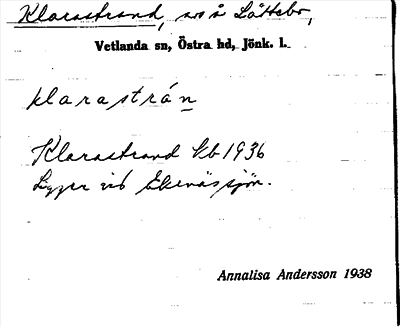 Klarastrand, avs å Låttebo,
Vetlanda sn, Östra hd, Jönk. l.
klarastrán
Klarastrand kb 1936
Ligger vid Ekenässjön.
Annalisa Andersson 1938